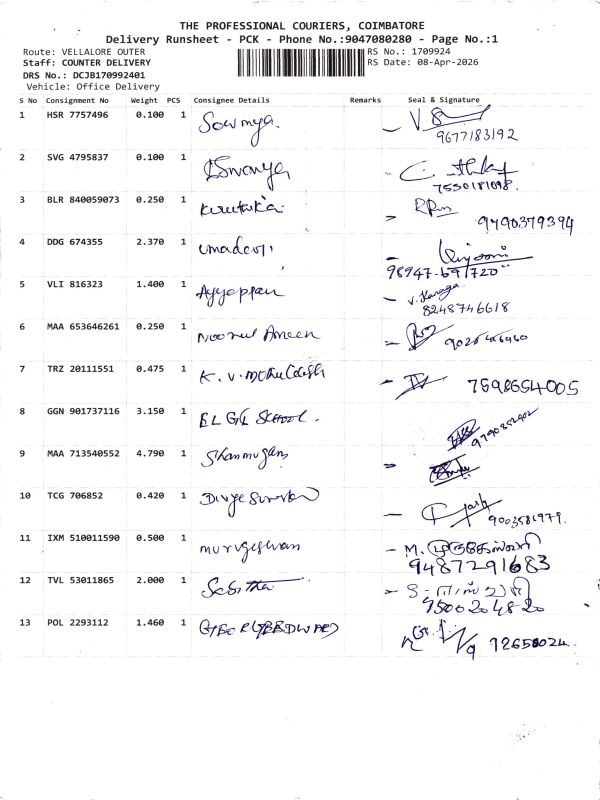 THE PROFESSIONAL COURIERS, COIMBATORE
Delivery Runsheet - PCK - Phone No.:9047080280 - Page No.:1
Route: VELLALORE OUTER RS No.: 1709924
Staff: COUNTER DELIVERY RS Date: 08-Apr-2026
DRS No.: DCJB170992401
Vehicle: Office Delivery
S No Consignment No Weight PCS Consignee Details Remarks Seal & Signature
1 HSR 7757496 0.100 1 Sowmya.
9677183192
2 SVG 4795837 0.100 1 Eswarya
7550181098.
3 BLR 840059073 0.250 1 Kiruthika 9790379394
4 DDG 674355 2.370 1 umadevi
98947-69720
5 VLI 816323 1.400 1 Ayyappan
8248746618
6 MAA 653646261 0.250 1 Noorul Ameen
7 TRZ 20111551 0.475 1 K. V. 7598654005
8 GGN 901737116 3.150 1 ELGI SCHOOL.
9790352402
9 MAA 713540552 4.790 1 Shanmugam
10 TCG 706852 0.420 1
9003581979.
11 IXM 510011590 0.500 1 murugeswan M. முருகேஸ்வரி
9487291683
12 TVL 53011865 2.000 1 Sabitha
9500204820
13 POL 2293112 1.460 1